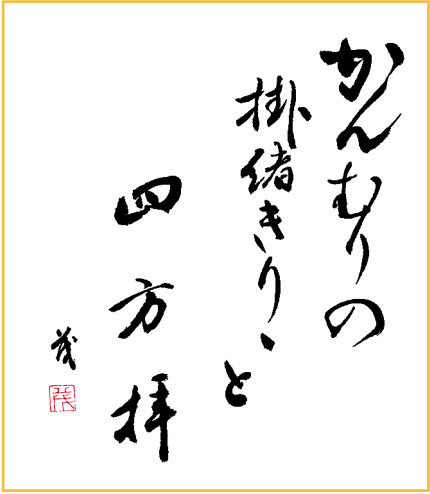 かんむりの
掛緒きりゝと
四方拝
茂
茂